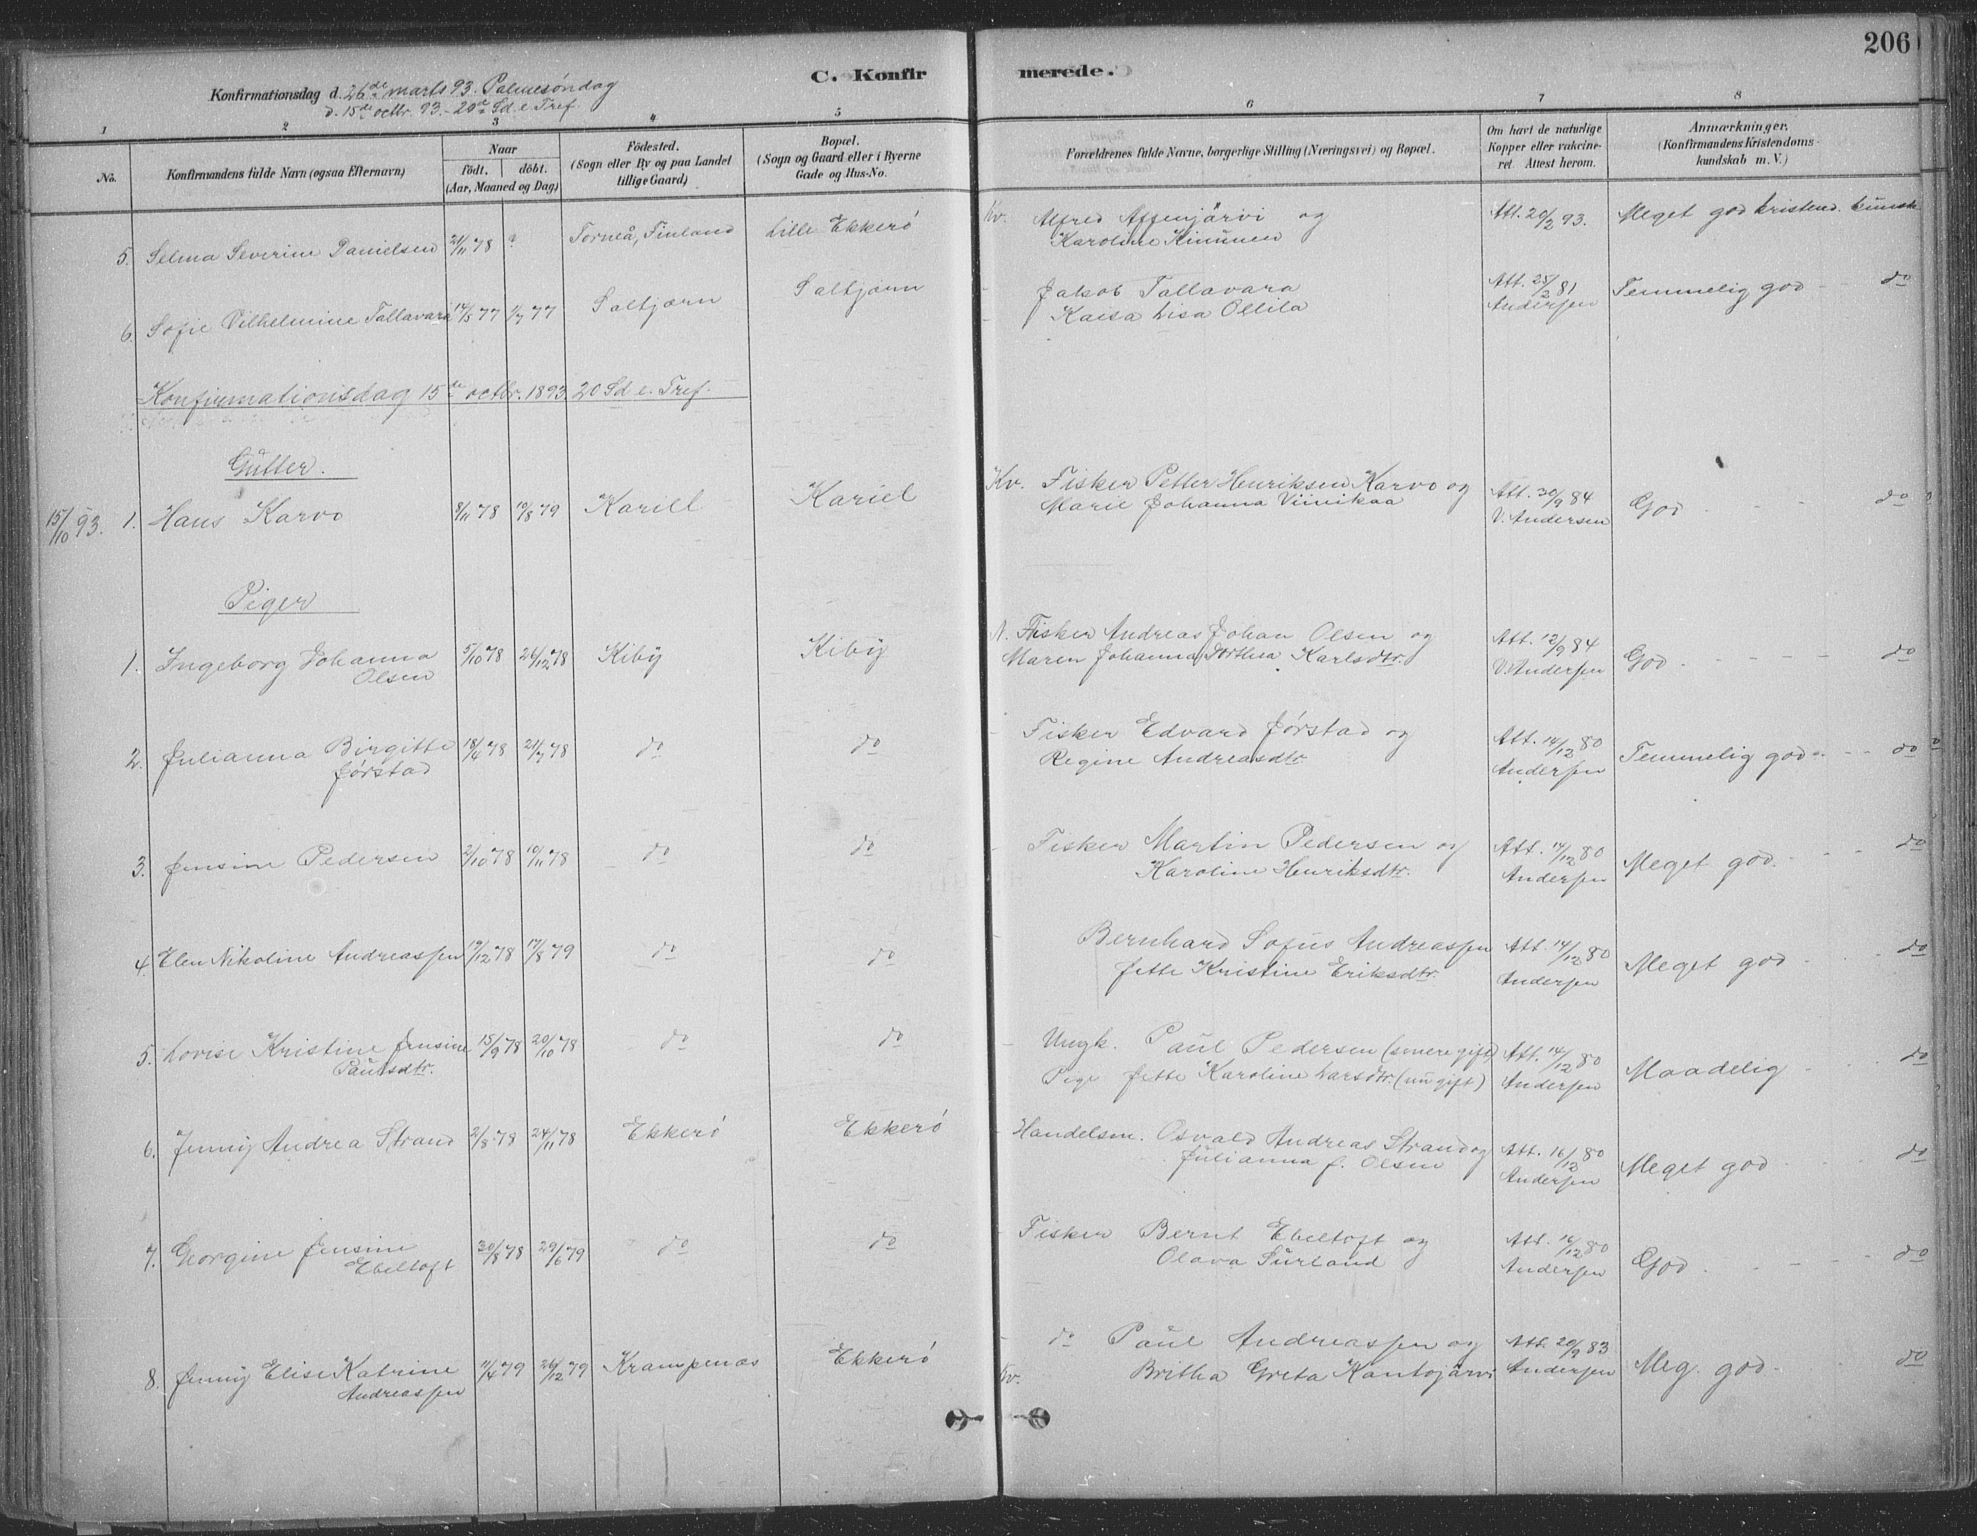 206
C. Konfir merede.
Konfirmationsdag d. 26de marts 93. Palmesøndag
d. 15de octbr. 93. - 20de Sd. e. Tref.
1 2 3 4 5 6 7 8
No. Konfirmandens fulde Navn (ogsaa Efternavn)
Naar
födt. döbt.
(Aar, Maaned og Dag)
Födested.
(Sogn eller By og paa Landet
tillige Gaard)
Bopæl.
(Sogn og Gaard eller i Byerne
Gade og Hus-No.
Forældrenes fulde Navne, borgerlige Stilling (Næringsvei) og Bopæl.
Om havt de naturlige
Kopper eller vakcine-
ret. Attest herom.
Anmærkninger.
(Konfirmandens Kristendoms-
kundskab m. V.)
5. Selma Severine Danielsen 21/11 78 ? Torneå, Finland Lille Ekkerø Kv. Alfred Affenjärvi og Att. 20/2 93. Meget god kristend. kunsk
Karoline Kinunen
6. Sofie Vilhelmine Tallavara 14/5 77 1/7 77 Saltjærn Saltjærn Jakob Tallavara Att. 25/2 81 Temmelig god do
Kaisa Lisa Ollila Andersen
Konfirmationsdag 15de octbr. 1893 20 Sd e. Tref.
Gutter.
15/10 93. 1. Hans Karvo 8/11 78 19/8 79 Kariel Kariel Kv. Fisker Petter Henriksen Karvo og Att. 30/9 84 God do
Marie Johanna Viinikaa V. Andersen
Piger
1. Ingeborg Johanna 5/10 78 26/12 78 Kiby Kiby N. Fisker Andreas Johan Olsen og Att. 12/9 84 God do
Olsen Maren Johanna Dorthea Karlsdtr. V. Andersen
2. Julianna Birgitte 18/4 78 21/7 78 do do Fisker Edvard Jørstad og Att. 14/12 80 Temmelig god do
Jørstad Regine Andreasdtr Andersen
3. Jensine Pedersen 2/10 78 10/11 78 do do Fisker Martin Pedersen og Att. 14/12 80 Meget god. do
Karoline Henriksdtr. Andersen
4. Elen Nikoline Andreassen 19/12 78 17/8 79 do do Bernhard Sofus Andreassen Att. 14/12 80 Meget god do
Jette Kristine Eriksdtr. Andersen
5. Lovise Kristine Jensine 15/9 78 20/10 78 do do Ungk. Paul Pedersen (senere gift) Att. 14/12 80 Maadelig do
Paulsdtr. Pige Jette Karoline Larsdtr. (nu gift) Andersen
6. Jenny Andrea Strand 2/8 78 24/11 78 Ekkerø Ekkerø Handelsm. Osvald Andreas Strand og Att. 16/12 80 Meget god do
Julianna f. Olsen Andersen
7. Georgine Jensine 30/8 78 29/6 79 do do Fisker Bernt Ebeltoft og Att. 16/12 80 God do
Ebeltoft Olava Surland Andersen
8. Jenny Elise Katrine 11/4 79 26/12 79 Krampenæs Ekkerø do Paul Andreassen og Att. 20/9 83 Meg. god do
Andreassen Kv. Britha Greta Kantojärvi Andersen